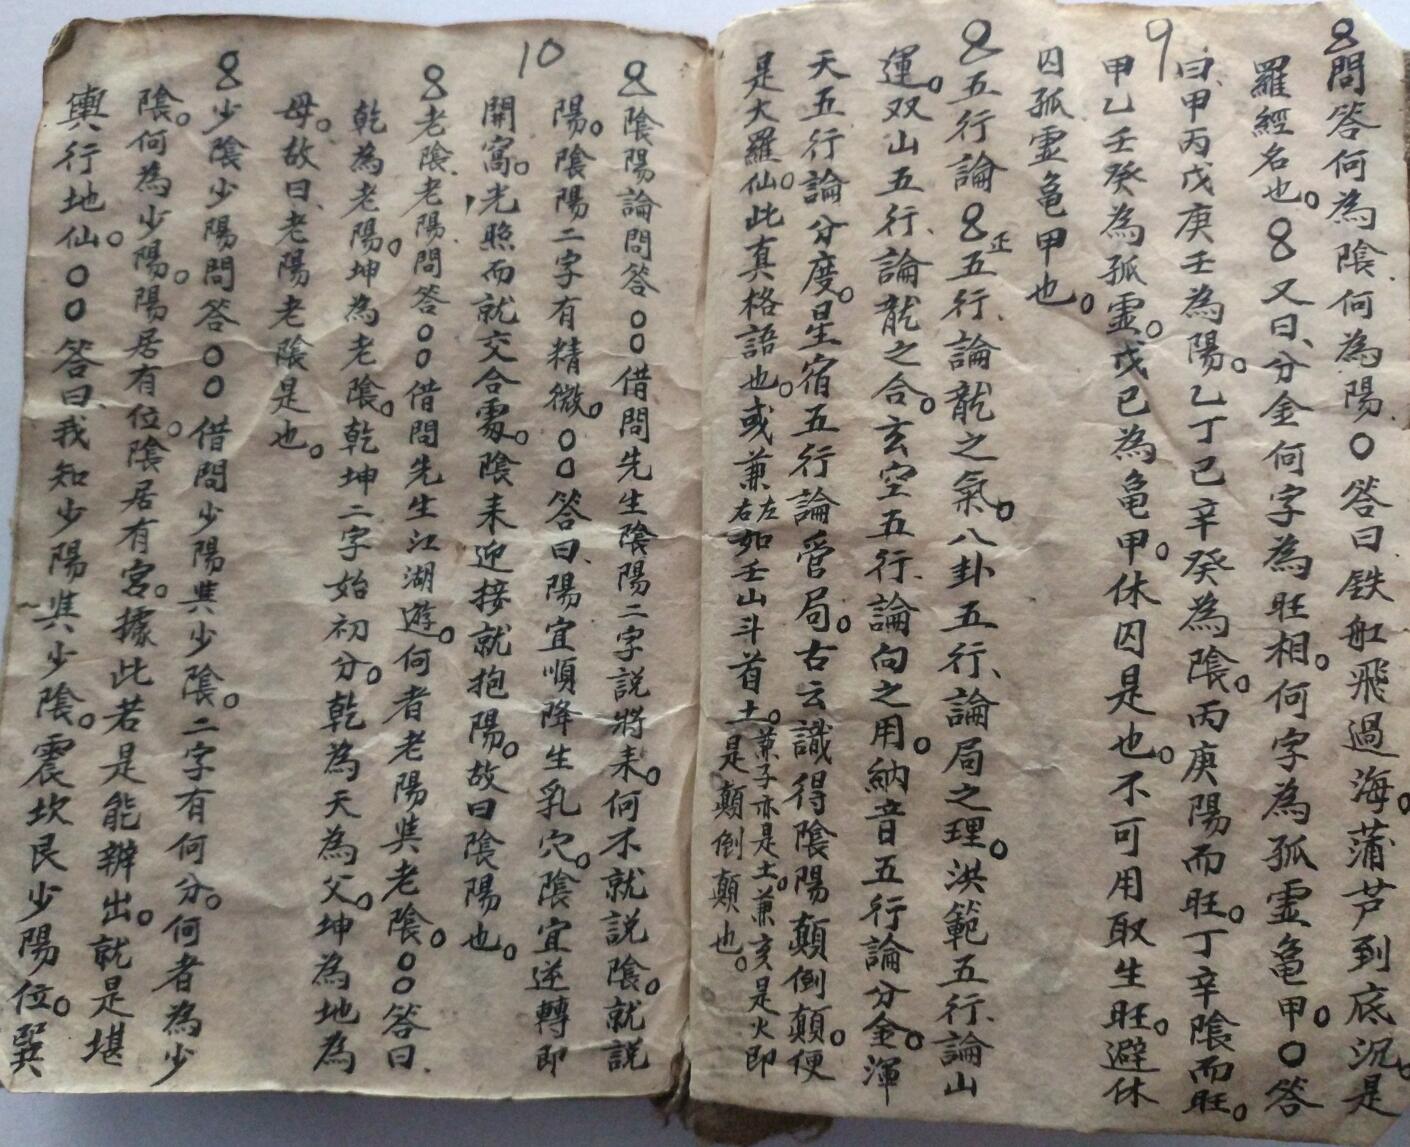 問答何為陰何為陽〇答曰鉄舡飛過海。蒲芦到底沉。是
羅經名也。又曰、分金何字為旺相。何字為孤霊亀甲。〇答
曰、甲丙戊庚壬為陽。乙丁已辛癸為陰。丙庚陽而旺。丁辛陰而旺。
甲乙壬癸為孤霊。戊已為亀甲。休囚是也。不可用取生旺。避休
囚孤霊亀甲也。
9
五行論正五行、論龍之氣。八卦五行、論局之理。洪範五行、論山
運。双山五行、論龍之合。玄空五行、論向之用。納音五行論分金。渾
天五行論分度。星宿五行論管局。古云識得陰陽顛倒顛。便
是大羅仙。此真格語也。或兼左右如壬山斗首土。兼子亦是土。兼亥是火即是顛倒顛也。
10
陰陽論問答〇〇借問先生陰陽二字説將来。何不就説陰。就説
陽。陰陽二字有精微。〇〇答曰、陽宜順降生乳穴。陰宜逆轉即
開窩。光照而就交合處。陰来迎接就抱陽。故曰陰陽也。
老陰、老陽問答〇〇借問先生江湖遊。何者老陽㒷老陰。〇〇答曰、
乾為老陽。坤為老陰。乾坤二字始初分。乾為天為父。坤為地為
母。故曰、老陽老陰是也。
少陰少陽問答〇〇借問少陽㒷少陰。二字有何分。何者為少
陰。何為少陽。陽居有位。陰居有宮。據此若是能辦出。就是堪
輿行地仙。〇〇答曰、我知少陽㒷少陰。震坎艮少陽位。巽